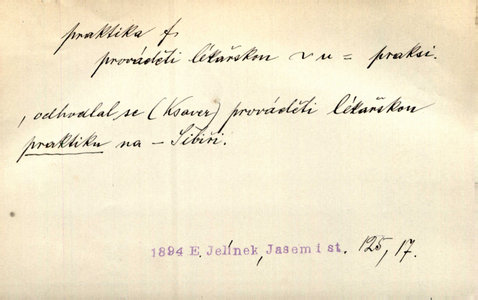 praktika f
prováděti lékařskou ~ u = praksi.
, odhodlal se (Ksaver) prováděti lékařskou
praktiku na – Sibiři.
1894 E. Jelínek, Jasem i st. 125, 17.